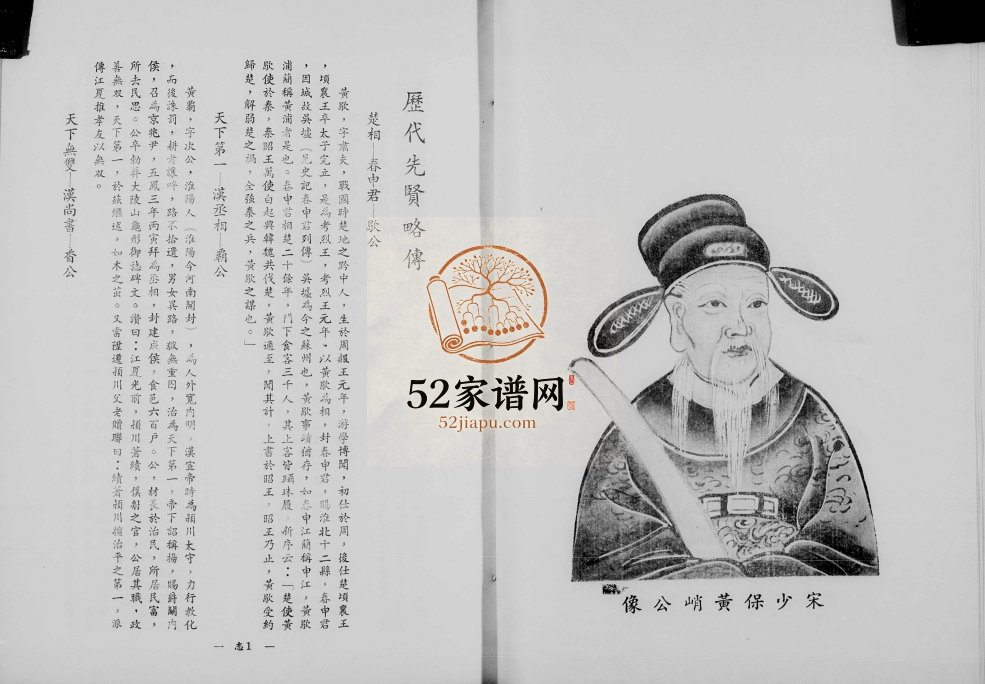 宋少保黃峭公像
歷代先賢略傳
楚相—春申君—歇公
黃歇，字肅夫，戰國時楚地之黔中人，生於周赧王元年，游學博聞，初仕於周，後仕楚頃襄王
，頃襄王卒太子完立，是為考烈王，考烈王元年，以黃歇為相，封春申君，賜淮北十二縣，春申君
，因城故吳墟（見史記春申君列傳）吳墟為今之蘇州也，黃歇事蹟猶存，如春申江簡稱申江，黃歇
浦簡稱黃浦者是也。春申君相楚二十餘年，門下食客三千人，其上客皆躡珠履。新序云：「楚使黃
歇使於秦，秦昭王萬使白起與韓魏共伐楚，黃歇適至，聞其計，上書於昭王，昭王乃止，黃歇受約
歸楚，解弱楚之禍，全強秦之兵，黃歇之謀也。」
天下第一—漢丞相—霸公
黃霸，字次公，淮陽人（淮陽今河南開封），為人外寬內明，漢宣帝時為潁川太守，力行教化
，而後誅罰，耕者讓畔，路不拾遺，男女異路，獄無重囚，治為天下第一，帝下詔稱揚，賜爵關內
侯，召為京兆尹，五鳳三年丙寅拜為丞相，封建成侯，食邑六百戶。公，材長於治民，所居民富，
所去民思。公卒勅葬大陵山龜形御誌碑文。讚曰：江夏光前，潁川著績，僕射之官，公居其職，政
善無双，天下第一，於茲繼述，如木之茁。又當陞遷潁川父老贈聯曰：績著潁川擅治平之第一，派
傳江夏推孝友以無双。
天下無雙—漢尚書—香公
一 志1 一
52家谱网
52jiapu.com